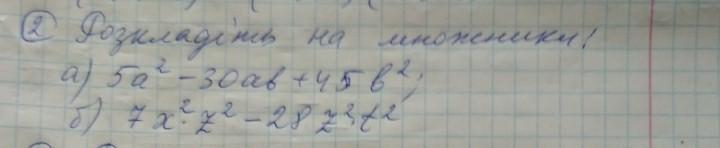 2 Розкладіть на множники:
а) 5a² - 30ab + 45b²;
б) 7x²·z² - 28z²t²